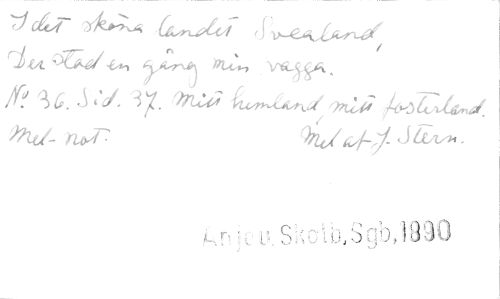 I det sköna landet Svealand,
Der stod en gång min vagga.
No. 36. Sid. 37. Mitt hemland, mitt fosterland.
Mel-not. Mel af J. Stern.
Anjou, Skolb, Sgb, 1890